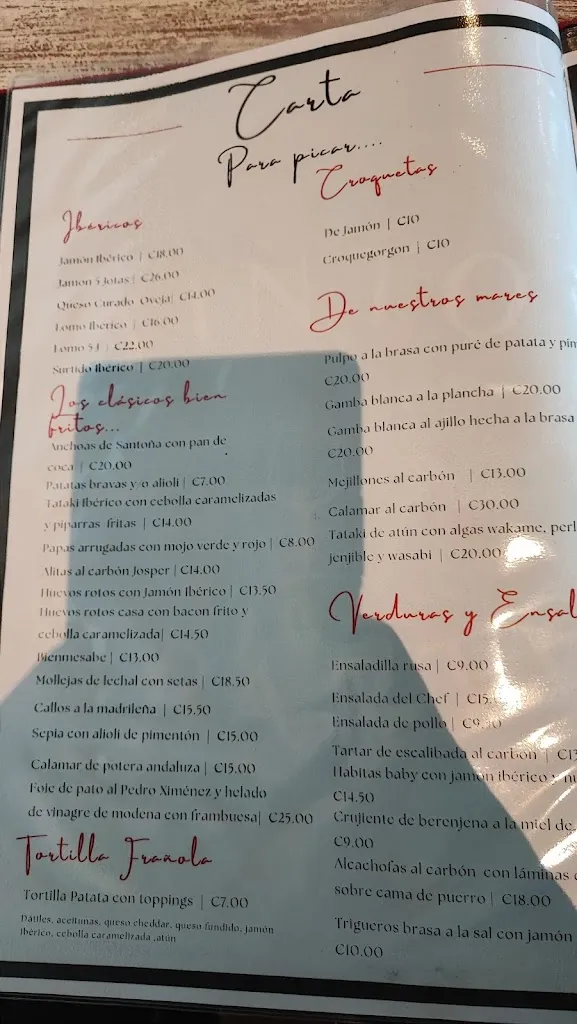 Carta
Para picar....
Ibéricos
Jamón Ibérico | €18.00
Jamón 5 Jotas | €26.00
Queso Curado Oveja| €14.00
Lomo Ibérico | €16.00
Lomo 5J | €22.00
Surtido Ibérico | €20.00
Los clásicos bien
fritos...
Anchoas de Santoña con pan de
coca | €20.00
Patatas bravas y/o alioli | €7.00
Tataki Ibérico con cebolla caramelizadas
y piparras fritas | €14.00
Papas arrugadas con mojo verde y rojo | €8.00
Alitas al carbón Josper | €14.00
Huevos rotos con Jamón Ibérico | €13.50
Huevos rotos casa con bacon frito y
cebolla caramelizada| €14.50
Bienmesabe | €13.00
Mollejas de lechal con setas | €18.50
Callos a la madrileña | €15.50
Sepia con alioli de pimentón | €15.00
Calamar de potera andaluza | €15.00
Foie de pato al Pedro Ximénez y helado
de vinagre de modena con frambuesa| €25.00
Tortilla Frañola
Tortilla Patata con toppings | €7.00
Dátiles, aceitunas, queso cheddar, queso fundido, jamón
Ibérico, cebolla caramelizada ,atún
Croquetas
De Jamón | €10
Croquegorgon | €10
De nuestros mares
Pulpo a la brasa con puré de patata y pim
€20.00
Gamba blanca a la plancha | €20.00
Gamba blanca al ajillo hecha a la brasa
€20.00
Mejillones al carbón | €13.00
Calamar al carbón | €30.00
Tataki de atún con algas wakame, perl
jenjible y wasabi | €20.00
Verduras y Ensal
Ensaladilla rusa | €9.00
Ensalada del Chef | €15.
Ensalada de pollo | €9.50
Tartar de escalibada al carbón | €13
Habitas baby con jamón ibérico y
€14.50
Crujiente de berenjena a la miel de
€9.00
Alcachofas al carbón con láminas
sobre cama de puerro | €18.00
Trigueros brasa a la sal con jamón
€10.00